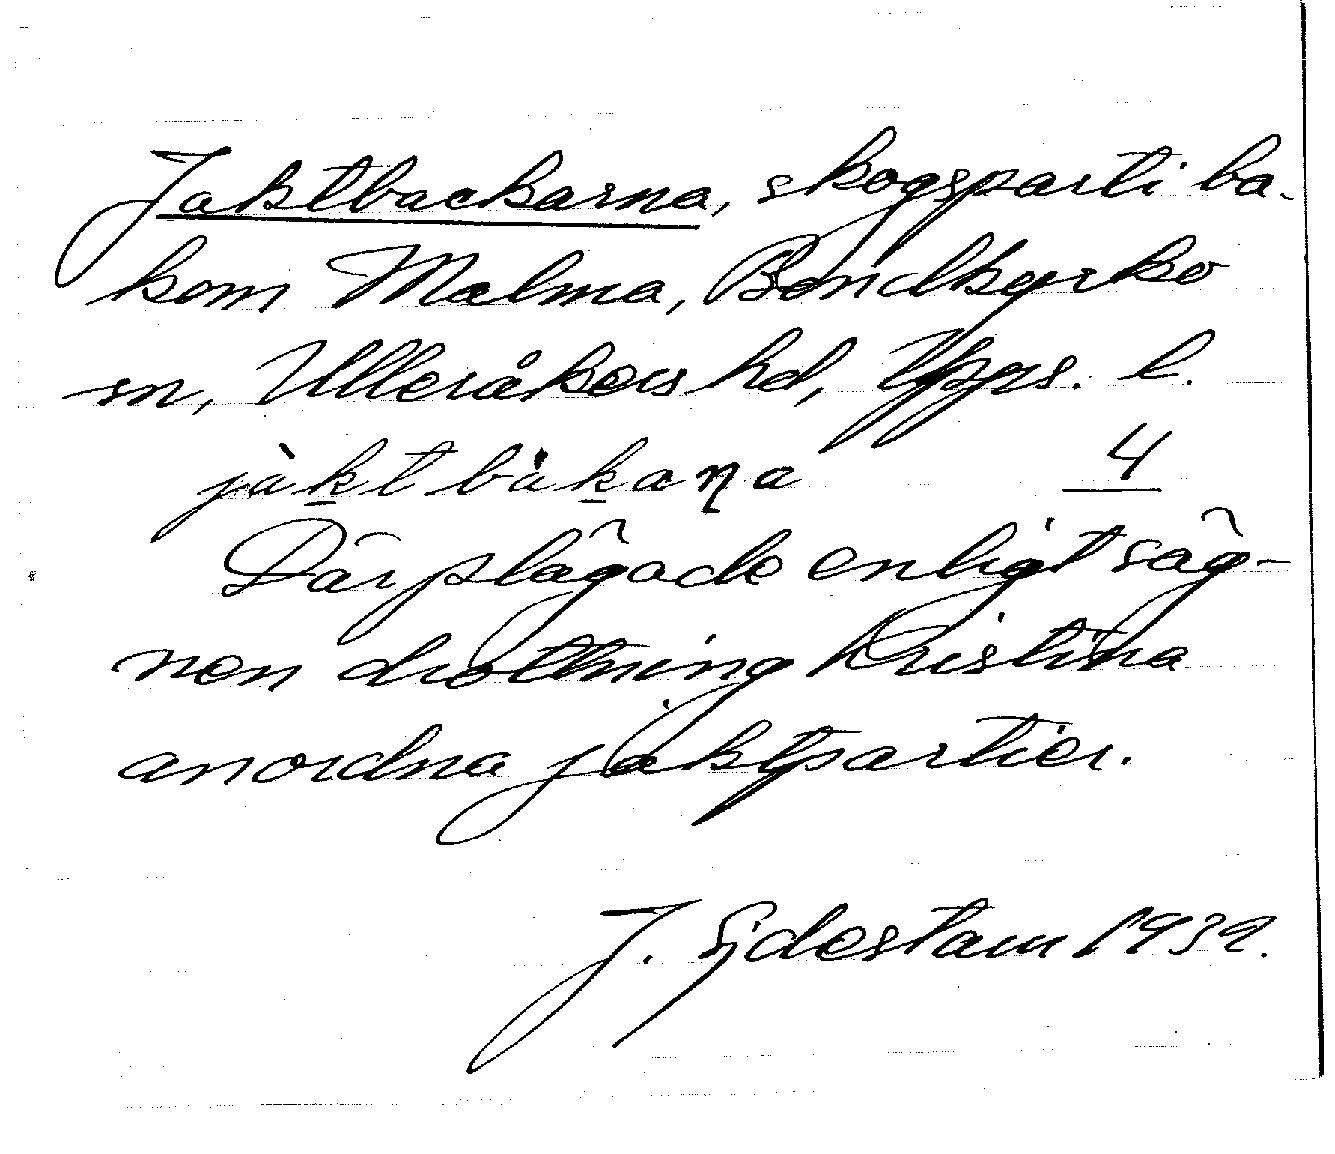 Jaktbackarna, skogsparti ba-
kom Malma, Bondkyrko
sn, Ulleråkers hd, Upps. l.
jàktbàkaṇa 4
Där plägade enligt säg-
nen drottning Kristina
anordna jaktpartier.
J. Sjdestam 1932.